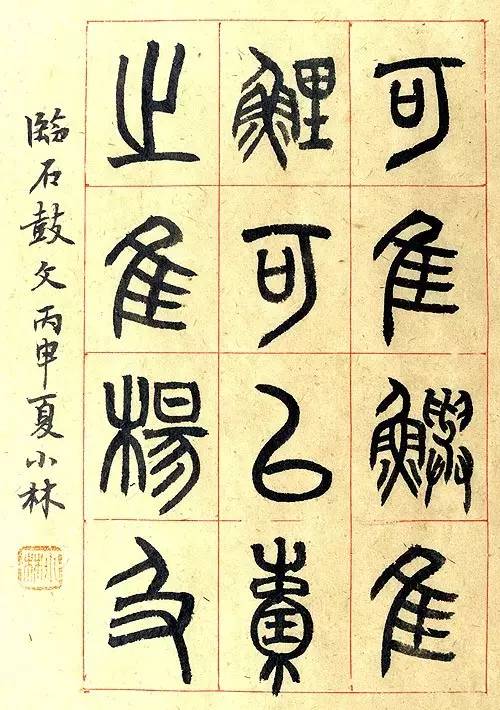 可隹鱮隹
鯉可㠯橐
之隹楊及
臨石鼓文丙申夏小林